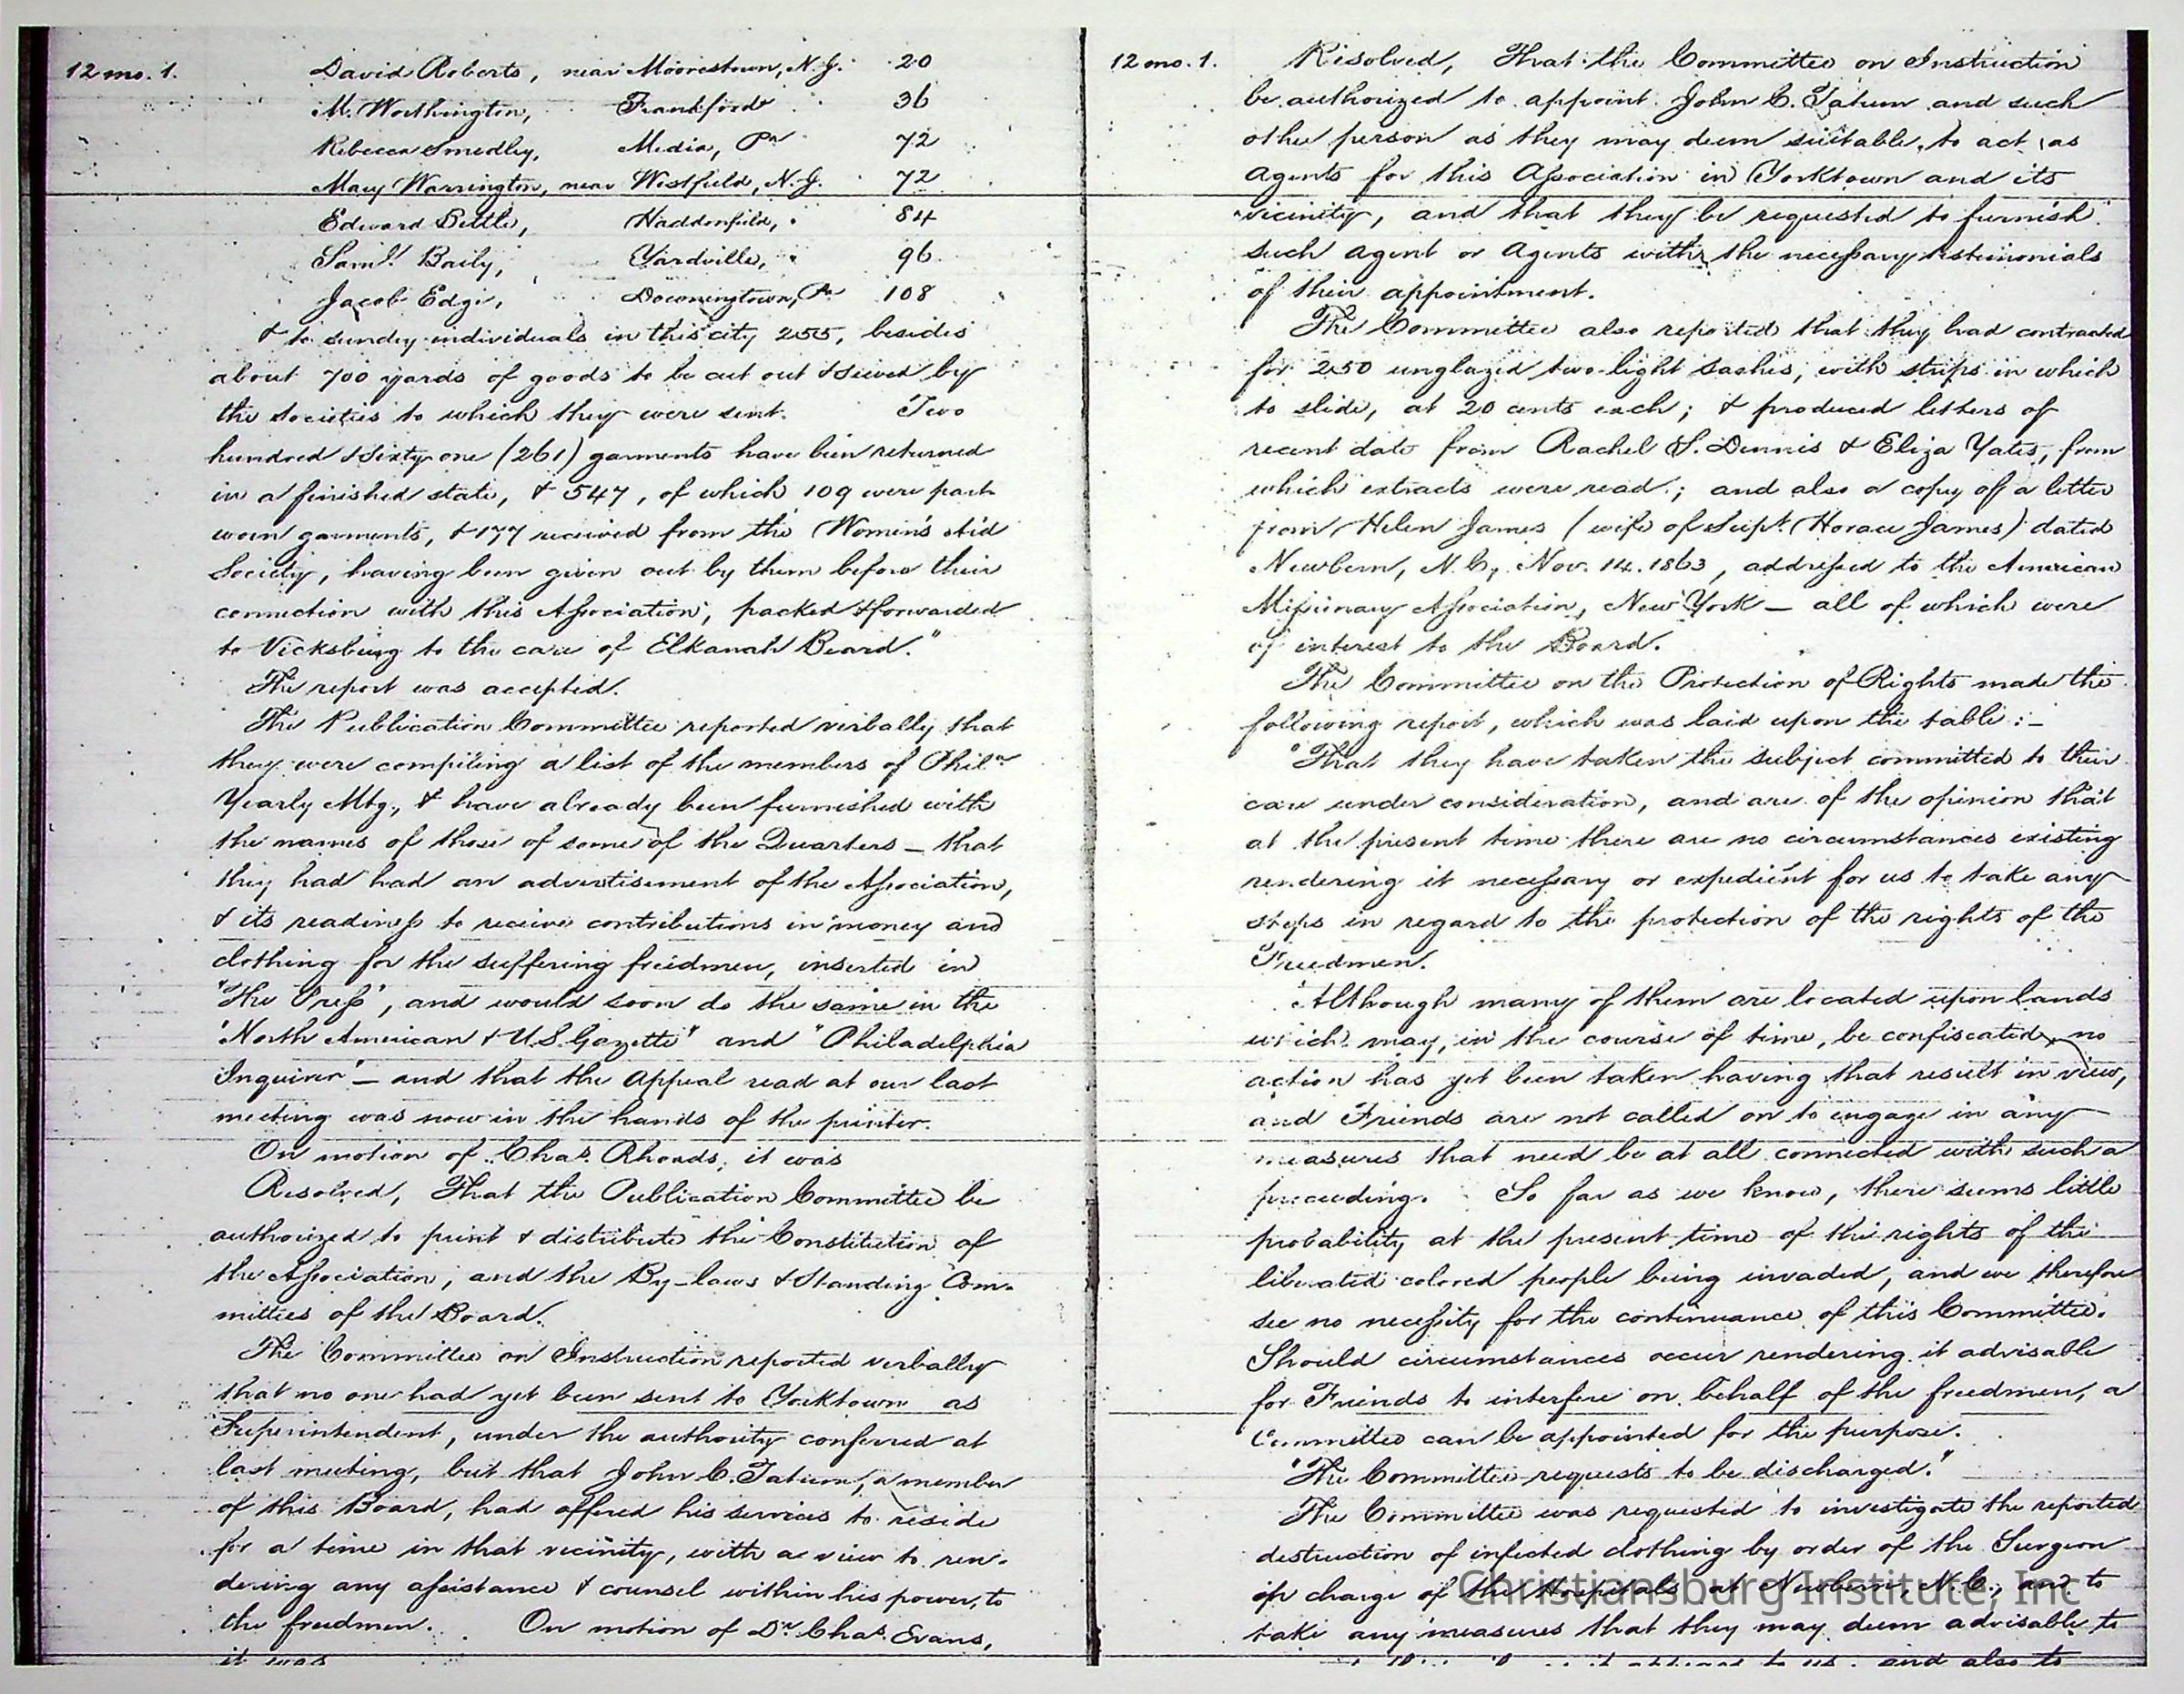 12 mo. 1.
David Roberts, near Moorestown, N.J. 20
M. Worthington, Frankford 36
Rebecca Smedley, Media, Pa 72
Mary Warrington, near Westfield, N.J. 72
Edward Bettle, Haddonfield, 84
Saml. Baily, Yardville, 96
Jacob Edge, Downingtown, Pa 108
& to sundry individuals in this city 255, besides
about 700 yards of goods to be cut out & sewed by
the Societies to which they were sent. Two
hundred & sixty one (261) garments have been returned
in a finished state, & 547, of which 109 were part
worn garments, & 177 received from the Women's Aid
Society, having been given out by them before their
connection with this Association, packed & forwarded
to Vicksburg to the care of Elkanah Beard."
The report was accepted.
The Publication Committee reported verbally that
they were compiling a list of the members of Phila
Yearly Mtg., & have already been furnished with
the names of those of some of the Quarters – that
they had had an advertisement of the Association,
& its readiness to receive contributions in money and
clothing for the suffering freedmen, inserted in
"The Press", and would soon do the same in the
"North American & U.S. Gazette" and "Philadelphia
Inquirer" – and that the Appeal read at our last
meeting was now in the hands of the printer.
On motion of Chas. Rhoads, it was
Resolved, That the Publication Committee be
authorized to print & distribute the Constitution of
the Association, and the By-laws & Standing Com-
mittees of the Board.
The Committee on Instruction reported verbally
that no one had yet been sent to Yorktown as
Superintendent, under the authority conferred at
last meeting, but that John C. Tatum, a member
of this Board, had offered his services to reside
for a time in that vicinity, with a view to ren-
dering any assistance & counsel within his power, to
the freedmen. On motion of Dr. Chas. Evans,
it was
12 mo. 1.
Resolved, That the Committee on Instruction
be authorized to appoint John C. Tatum and such
other person as they may deem suitable, to act as
Agents for this Association in Yorktown and its
vicinity, and that they be requested to furnish
such Agent or Agents with the necessary testimonials
of their appointment.
The Committee also reported that they had contracted
for 250 unglazed two-light sashes, with strips in which
to slide, at 20 cents each; & produced letters of
recent date from Rachel S. Dennis & Eliza Yates, from
which extracts were read; and also a copy of a letter
from Helen James (wife of Supt. Horace James) dated
Newbern, N.C., Nov. 14. 1863, addressed to the American
Missionary Association, New York – all of which were
of interest to the Board.
The Committee on the Protection of Rights made the
following report, which was laid upon the table: –
"That they have taken the subject committed to their
care under consideration, and are of the opinion that
at the present time there are no circumstances existing
rendering it necessary or expedient for us to take any
steps in regard to the protection of the rights of the
Freedmen.
"Although many of them are located upon lands
which may, in the course of time, be confiscated, no
action has yet been taken having that result in view,
and Friends are not called on to engage in any
measures that need be at all connected with such a
proceeding. So far as we know, there seems little
probability at the present time of the rights of the
liberated colored people being invaded, and we therefore
see no necessity for the continuance of this Committee.
Should circumstances occur rendering it advisable
for Friends to interfere on behalf of the freedmen, a
Committee can be appointed for the purpose.
"The Committee requests to be discharged."
The Committee was requested to investigate the reported
destruction of infected clothing by order of the Surgeon
in charge of the Hospitals at Newbern, N.C., and to
take any measures that they may deem advisable to
and also to
Christiansburg Institute, Inc